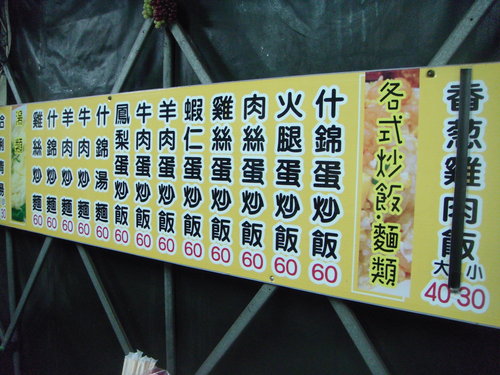 香葱雞肉飯
大 小
40 30
各式炒飯.麵類
什錦蛋炒飯 60
火腿蛋炒飯 60
肉絲蛋炒飯 60
雞絲蛋炒飯 60
蝦仁蛋炒飯 60
羊肉蛋炒飯 60
牛肉蛋炒飯 60
鳳梨蛋炒飯 60
什錦湯麵 60
牛肉炒麵 60
羊肉炒麵 60
什錦炒麵 60
雞絲炒麵 60
湯類
30